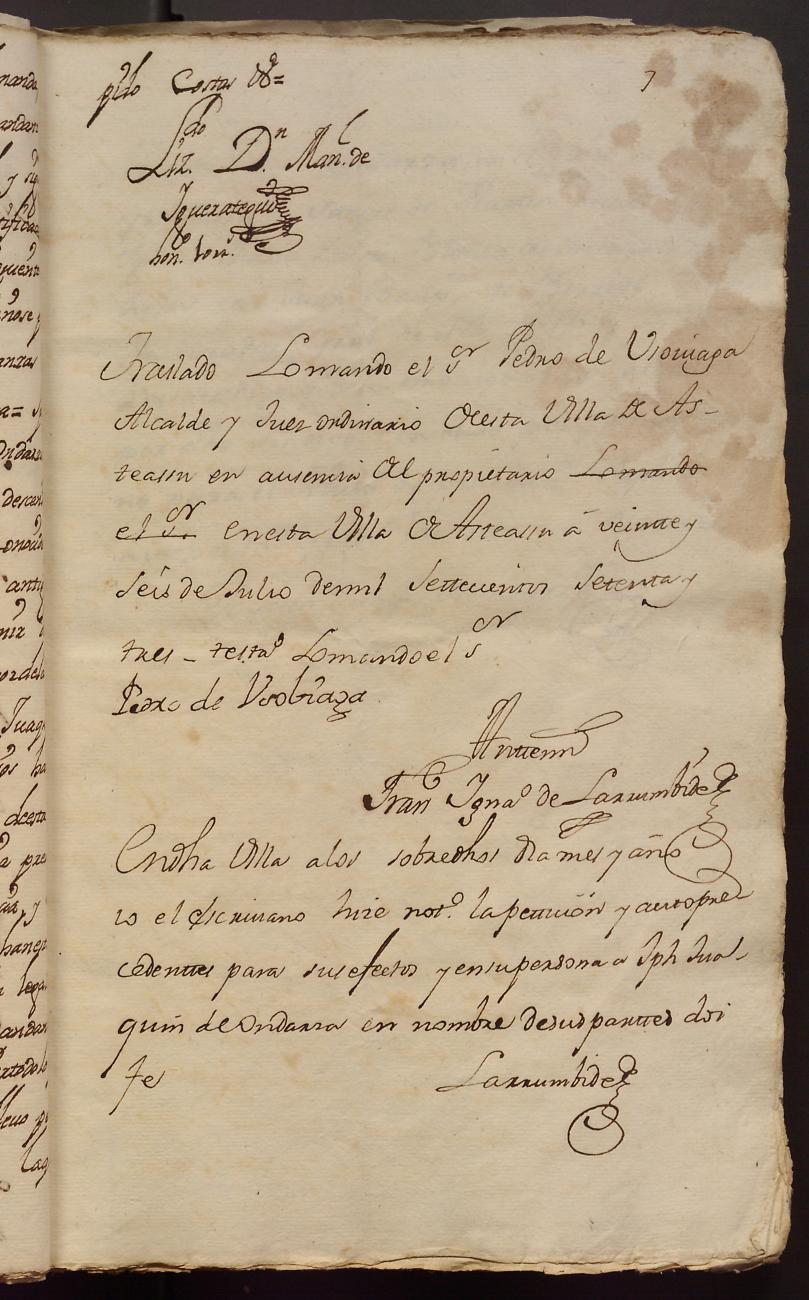 pido Costas &ª=
7
Lizdo. Dn. Manl. de
Yguerategui
honos. dros.
Traslado Lo mando el sor Pedro de Vsoviaga
Alcalde y Juez ordinario de esta Villa de As-
teasu en ausencia del propietario Lo mando
el Sor en esta Villa de Asteasu â veintte y
seis de Julio de mil settecientos setenta y
tres - testdo Lo mando el sor
Pedro de Vsobiaga
Antte mi
Franco Ygnao de Larrumbide
En dha Villa a los sobredhos dia mes y año
io el escrivano hize noto. la peticiôn y auto pre
cedenttes para sus efectos y en su persona a Jph Jua-
quin de Ondarra en nombre de sus parttes doi
fe
Larrumbide